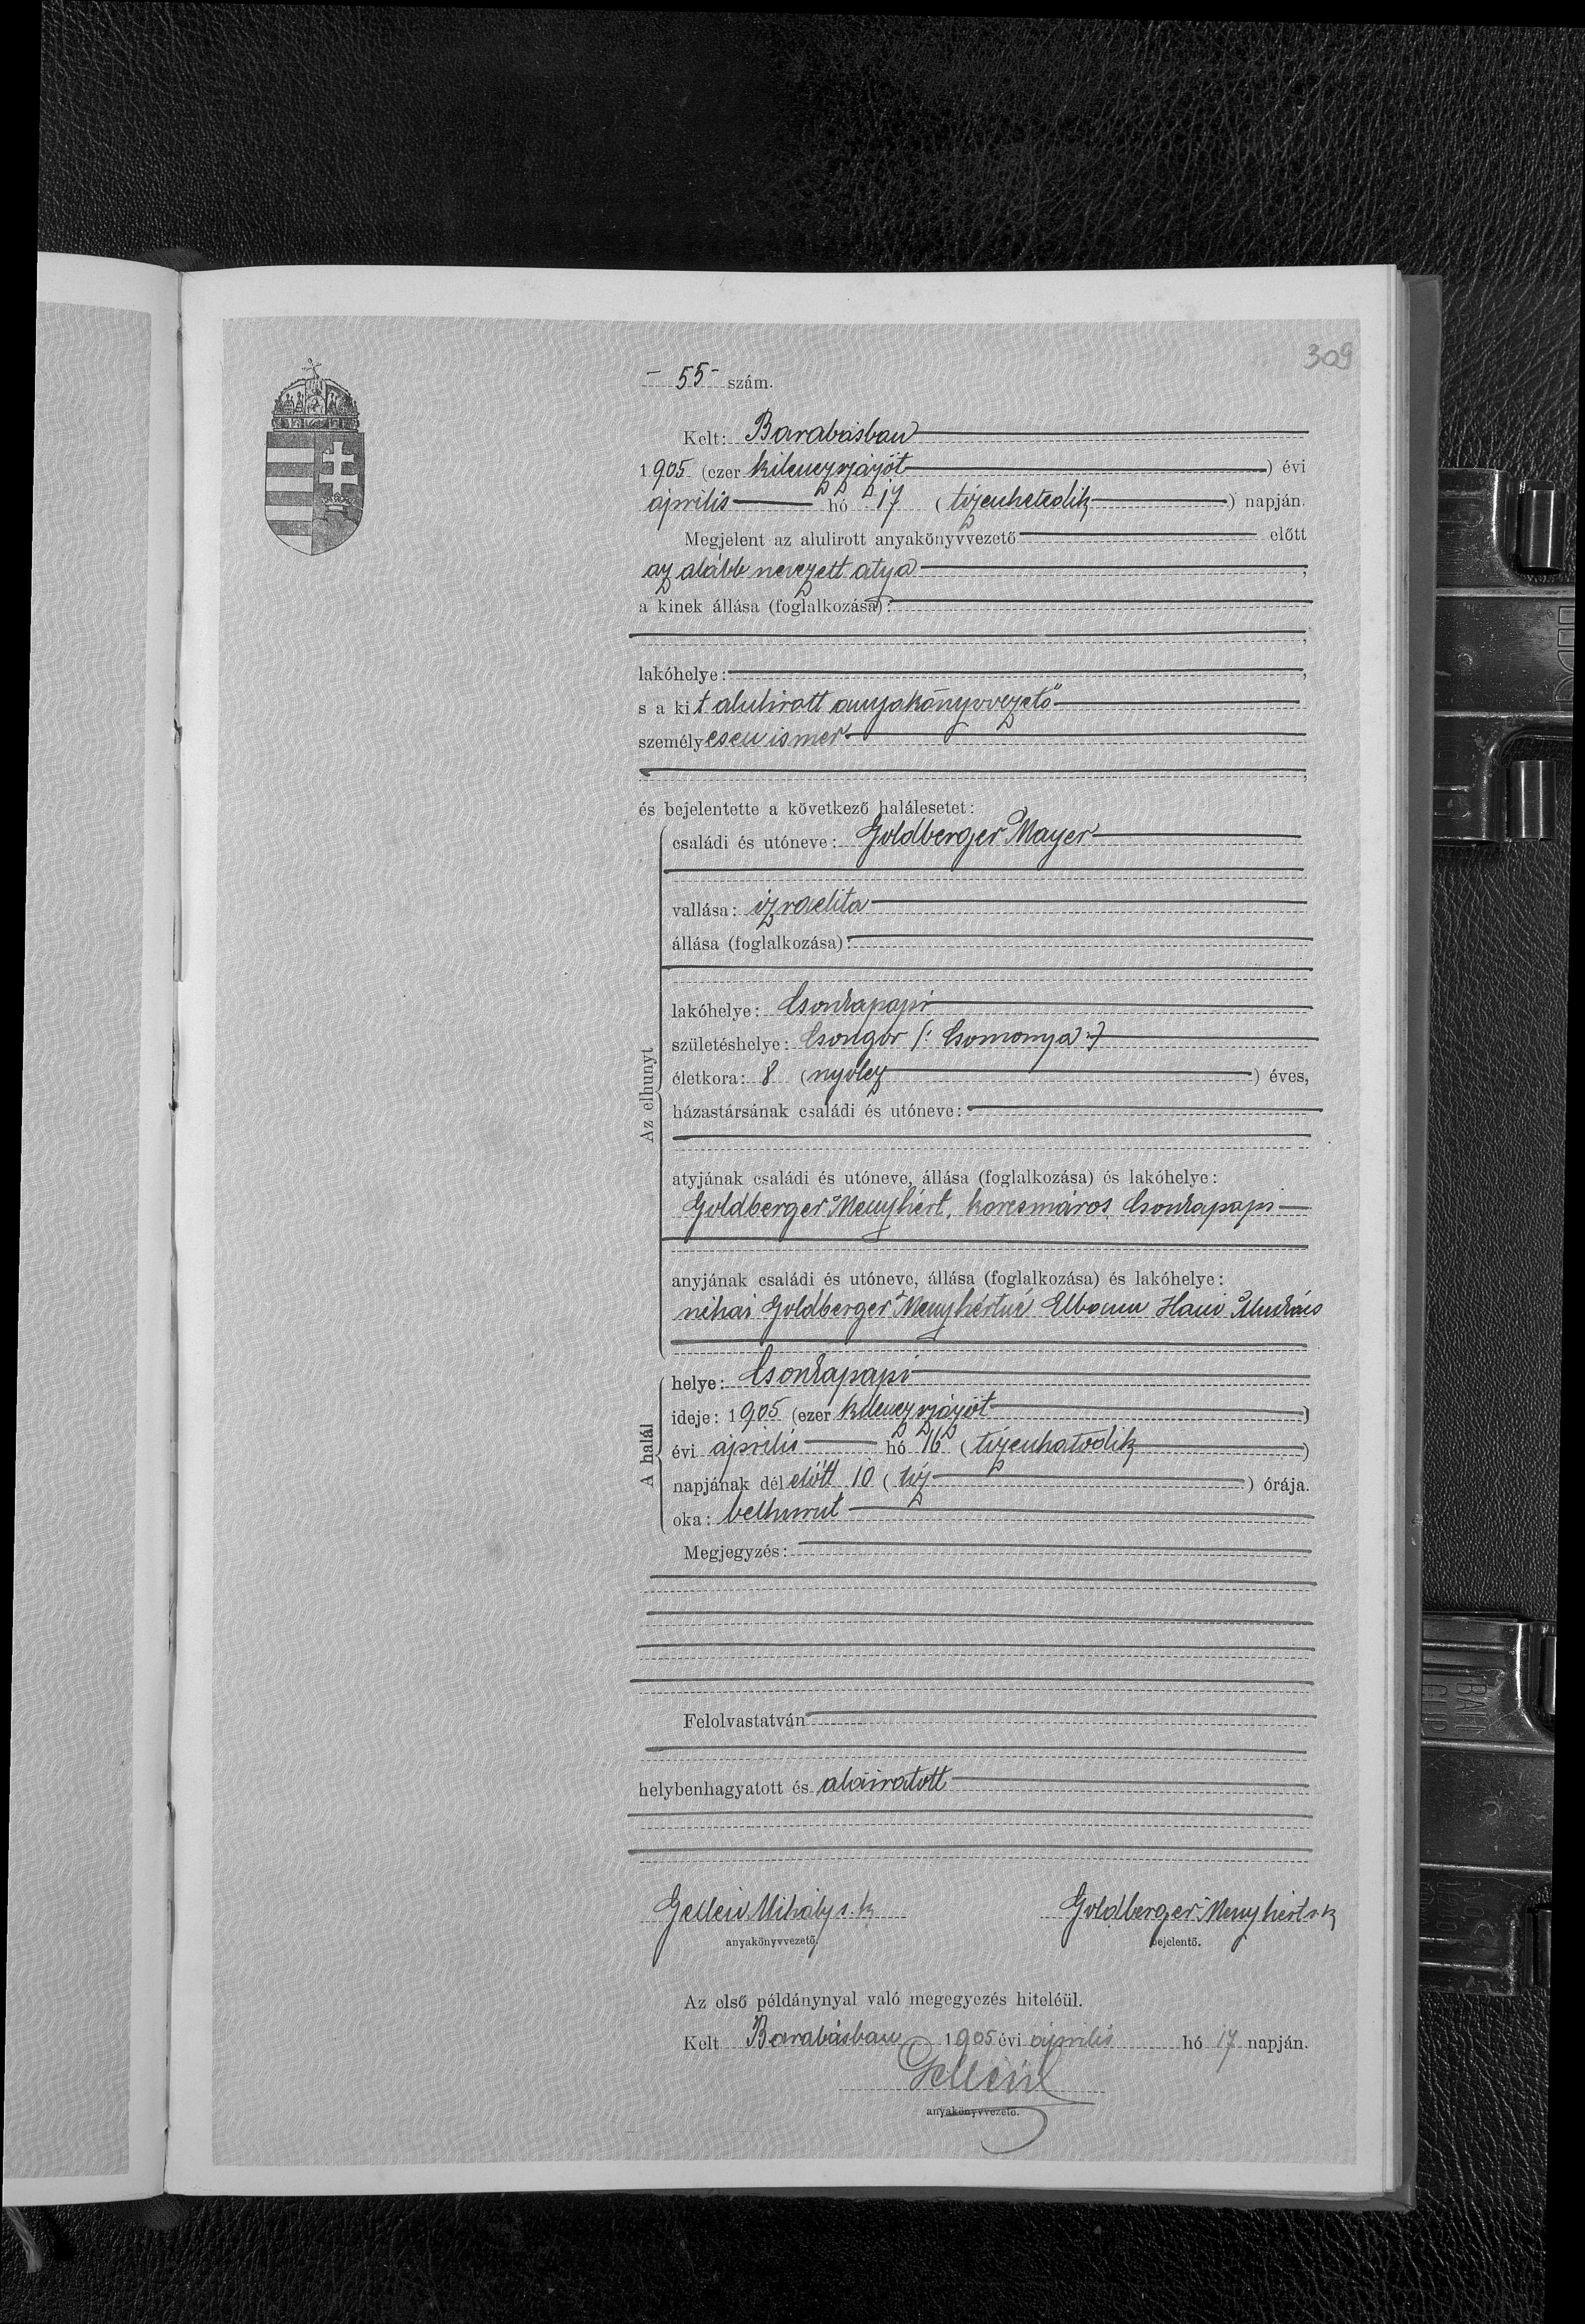 309
- 55 - szám.
Kelt: Barabásban
1905 (ezer kilenczszázöt ) évi
április hó 17 ( tizenhetedik ) napján.
Megjelent az alulirott anyakönyvvezető előtt
az alább nevezett atya ,
a kinek állása (foglalkozása):
;
lakóhelye: ,
s a kit alulirott anyakönyvvezető
személyesen ismer
,
és bejelentette a következő halálesetet:
Az elhunyt
családi és utóneve: Goldberger Mayer
vallása: izraelita
állása (foglalkozása):
lakóhelye: Csonkapapi
születéshelye: Csongor (: Csomonya :)
életkora: 8 (nyolcz ) éves,
házastársának családi és utóneve:
atyjának családi és utóneve, állása (foglalkozása) és lakóhelye:
Goldberger Menyhért, korcsmáros, Csonkapapi
anyjának családi és utóneve, állása (foglalkozása) és lakóhelye:
néhai Goldberger Menyhértné Elbaum Hani Munkács
A halál
helye: Csonkapapi
ideje: 1905 (ezer kilenczszázöt )
évi április hó 16 ( tizenhatodik )
napjának délelőtt 10 ( tíz ) órája.
oka: bélhurut
Megjegyzés:
Felolvastatván
helybenhagyatott és aláiratott
Gelléni Mihály s. k. Goldberger Menyhért s. k
anyakönyvvezető. bejelentő.
Az első példánynyal való megegyezés hiteléül.
Kelt Barabásban 1905 évi április hó 17 napján.
Gelléni
anyakönyvvezető.
BAL